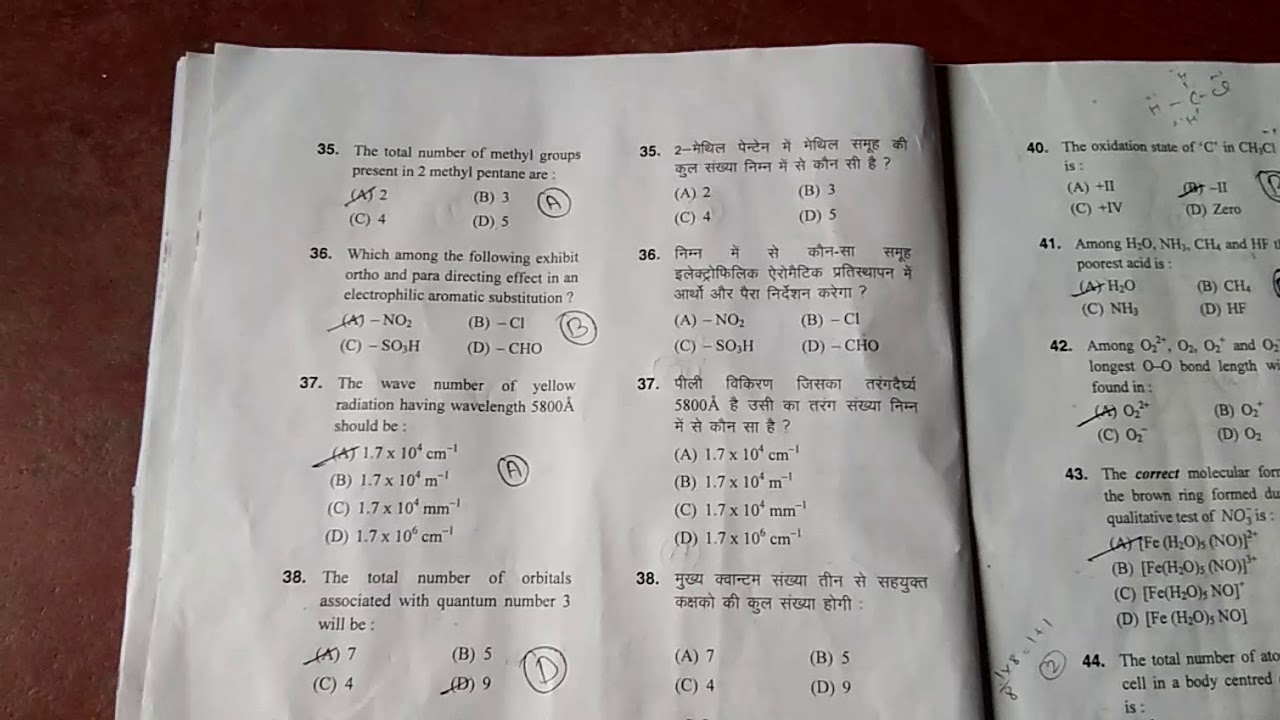 35. The total number of methyl groups
present in 2 methyl pentane are :
(A) 2 (B) 3
(C) 4 (D) 5
A
36. Which among the following exhibit
ortho and para directing effect in an
electrophilic aromatic substitution ?
(A) – NO₂ (B) – Cl
(C) – SO₃H (D) – CHO
B
37. The wave number of yellow
radiation having wavelength 5800Å
should be :
(A) 1.7 x 10⁴ cm⁻¹
(B) 1.7 x 10⁴ m⁻¹
(C) 1.7 x 10⁴ mm⁻¹
(D) 1.7 x 10⁶ cm⁻¹
A
38. The total number of orbitals
associated with quantum number 3
will be :
(A) 7 (B) 5
(C) 4 (D) 9
D
35. 2–मेथिल पेन्टेन में मेथिल समूह की
कुल संख्या निम्न में से कौन सी है ?
(A) 2 (B) 3
(C) 4 (D) 5
36. निम्न में से कौन-सा समूह
इलेक्ट्रोफिलिक ऐरोमैटिक प्रतिस्थापन में
आर्थो और पैरा निर्देशन करेगा ?
(A) – NO₂ (B) – Cl
(C) – SO₃H (D) – CHO
37. पीली विकिरण जिसका तरंगदैर्घ्य
5800Å है उसी का तरंग संख्या निम्न
में से कौन सा है ?
(A) 1.7 x 10⁴ cm⁻¹
(B) 1.7 x 10⁴ m⁻¹
(C) 1.7 x 10⁴ mm⁻¹
(D) 1.7 x 10⁶ cm⁻¹
38. मुख्य क्वान्टम संख्या तीन से सहयुक्त
कक्षको की कुल संख्या होगी :
(A) 7 (B) 5
(C) 4 (D) 9
40. The oxidation state of 'C' in CH₃Cl
is :
(A) +II (B) –II
(C) +IV (D) Zero
41. Among H₂O, NH₃, CH₄ and HF
poorest acid is :
(A) H₂O (B) CH₄
(C) NH₃ (D) HF
42. Among O₂²⁺, O₂, O₂⁺ and
longest O–O bond length
found in :
(A) O₂²⁺ (B) O₂⁺
(C) O₂⁻ (D) O₂
43. The correct molecular
the brown ring formed
qualitative test of NO₃⁻ is :
(A) [Fe (H₂O)₅ (NO)]²⁺
(B) [Fe(H₂O)₅ (NO)]³⁺
(C) [Fe(H₂O)₅ NO]⁺
(D) [Fe (H₂O)₅ NO]
2
44. The total number of
cell in a body centred
is :